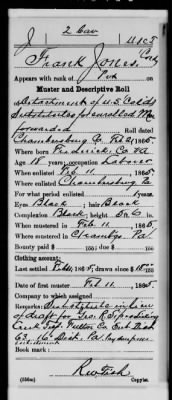 J 2 Cav U.S.C.T
Frank Jones, 
Appears with rank of Pvt
Muster and Descriptive Roll
of Detachment of U.S. Cold
Substitutes for enrolled
forwarded Roll dated
Chambersburg Pa Feb 1865.
Where born Frederick Co. Md
Age 18 years; occupation Laborer
When enlisted Feb 11, 1865.
Where enlisted Chambersburg Pa
For what period enlisted years.
Eyes Black; hair Black
Complexion Black; 
When mustered in Feb 11, 1865.
Where mustered in Chambg Pa.
Bounty paid $ 100; due $ 100
Clothing account:
Last settled , 186; drawn since $ 100
Date of first muster Feb 11, 1865.
Company to which assigned
Remarks: Substitute in lieu
of draft for Geo. R.
Creek Twp Fulton Co. Sub Dist
63, 16 Dist. Pa.
Book mark:
(356m) Copyist.